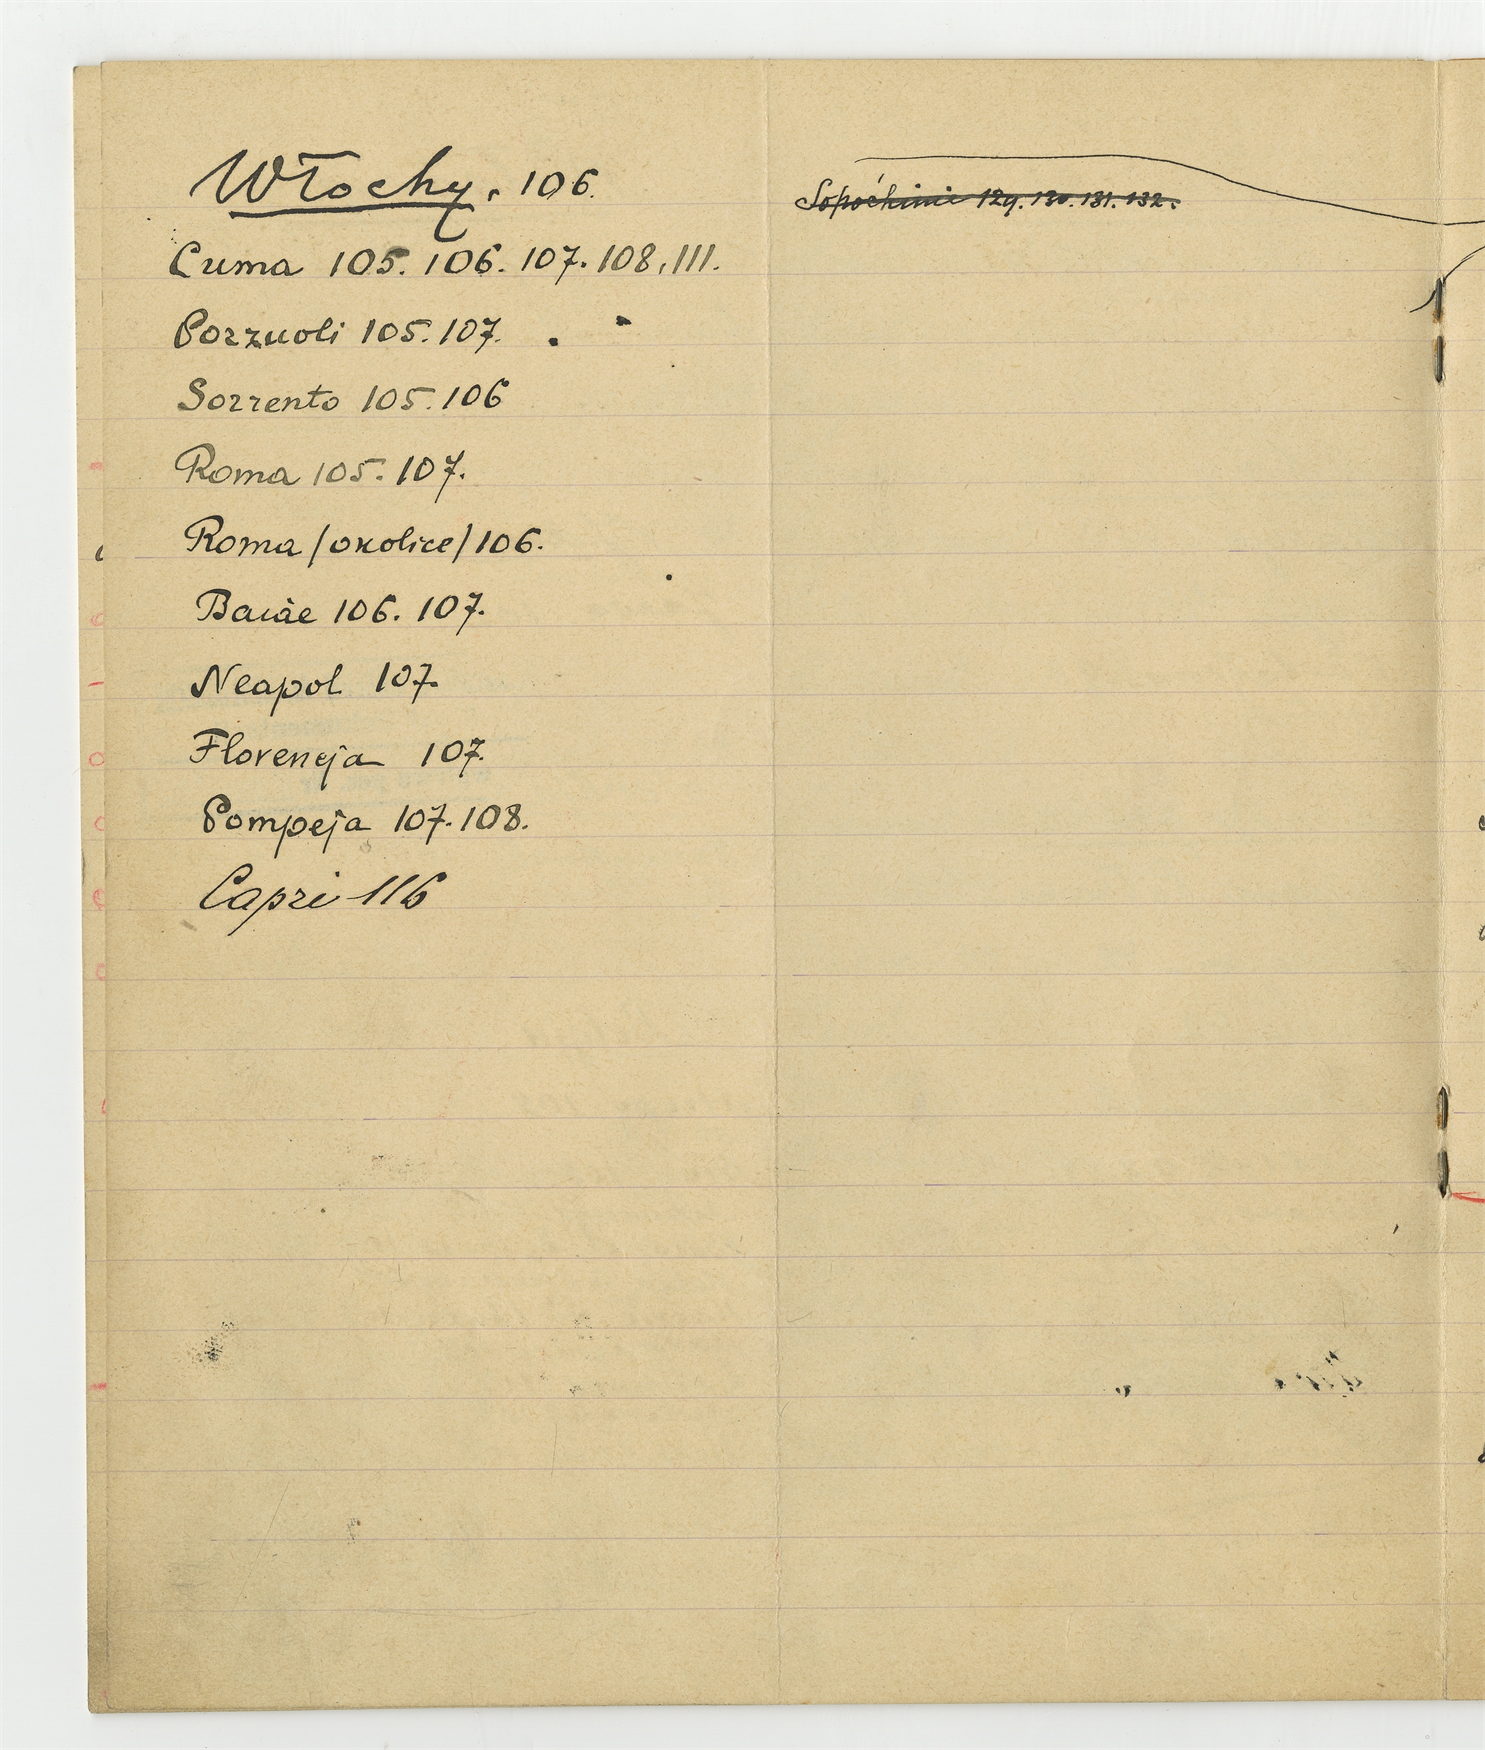 Włochy, 106.
Cuma 105. 106. 107. 108, 111.
Pozzuoli 105. 107.
Sorrento 105. 106
Roma 105. 107.
Roma /okolice/ 106.
Baiae 106. 107.
Neapol 107.
Florencja 107.
Pompeja 107. 108.
Capri 116
Sopoćkinie 129. 130. 131. 132.